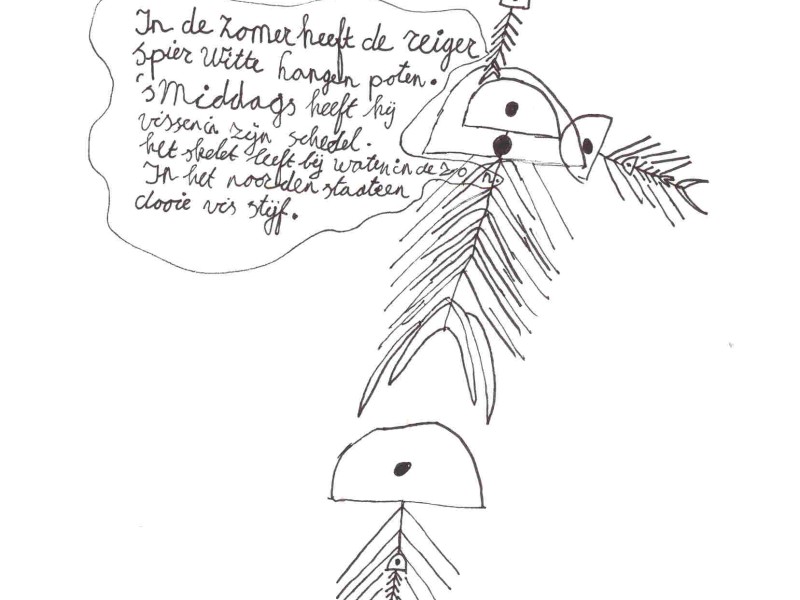 In de Zomer heeft de reiger
spier Witte hangen poten.
's Middags heeft hij
vissen in zijn schedel.
het skelet leeft bij water in de zon.
In het noorden staat een
dooie vis stijf.